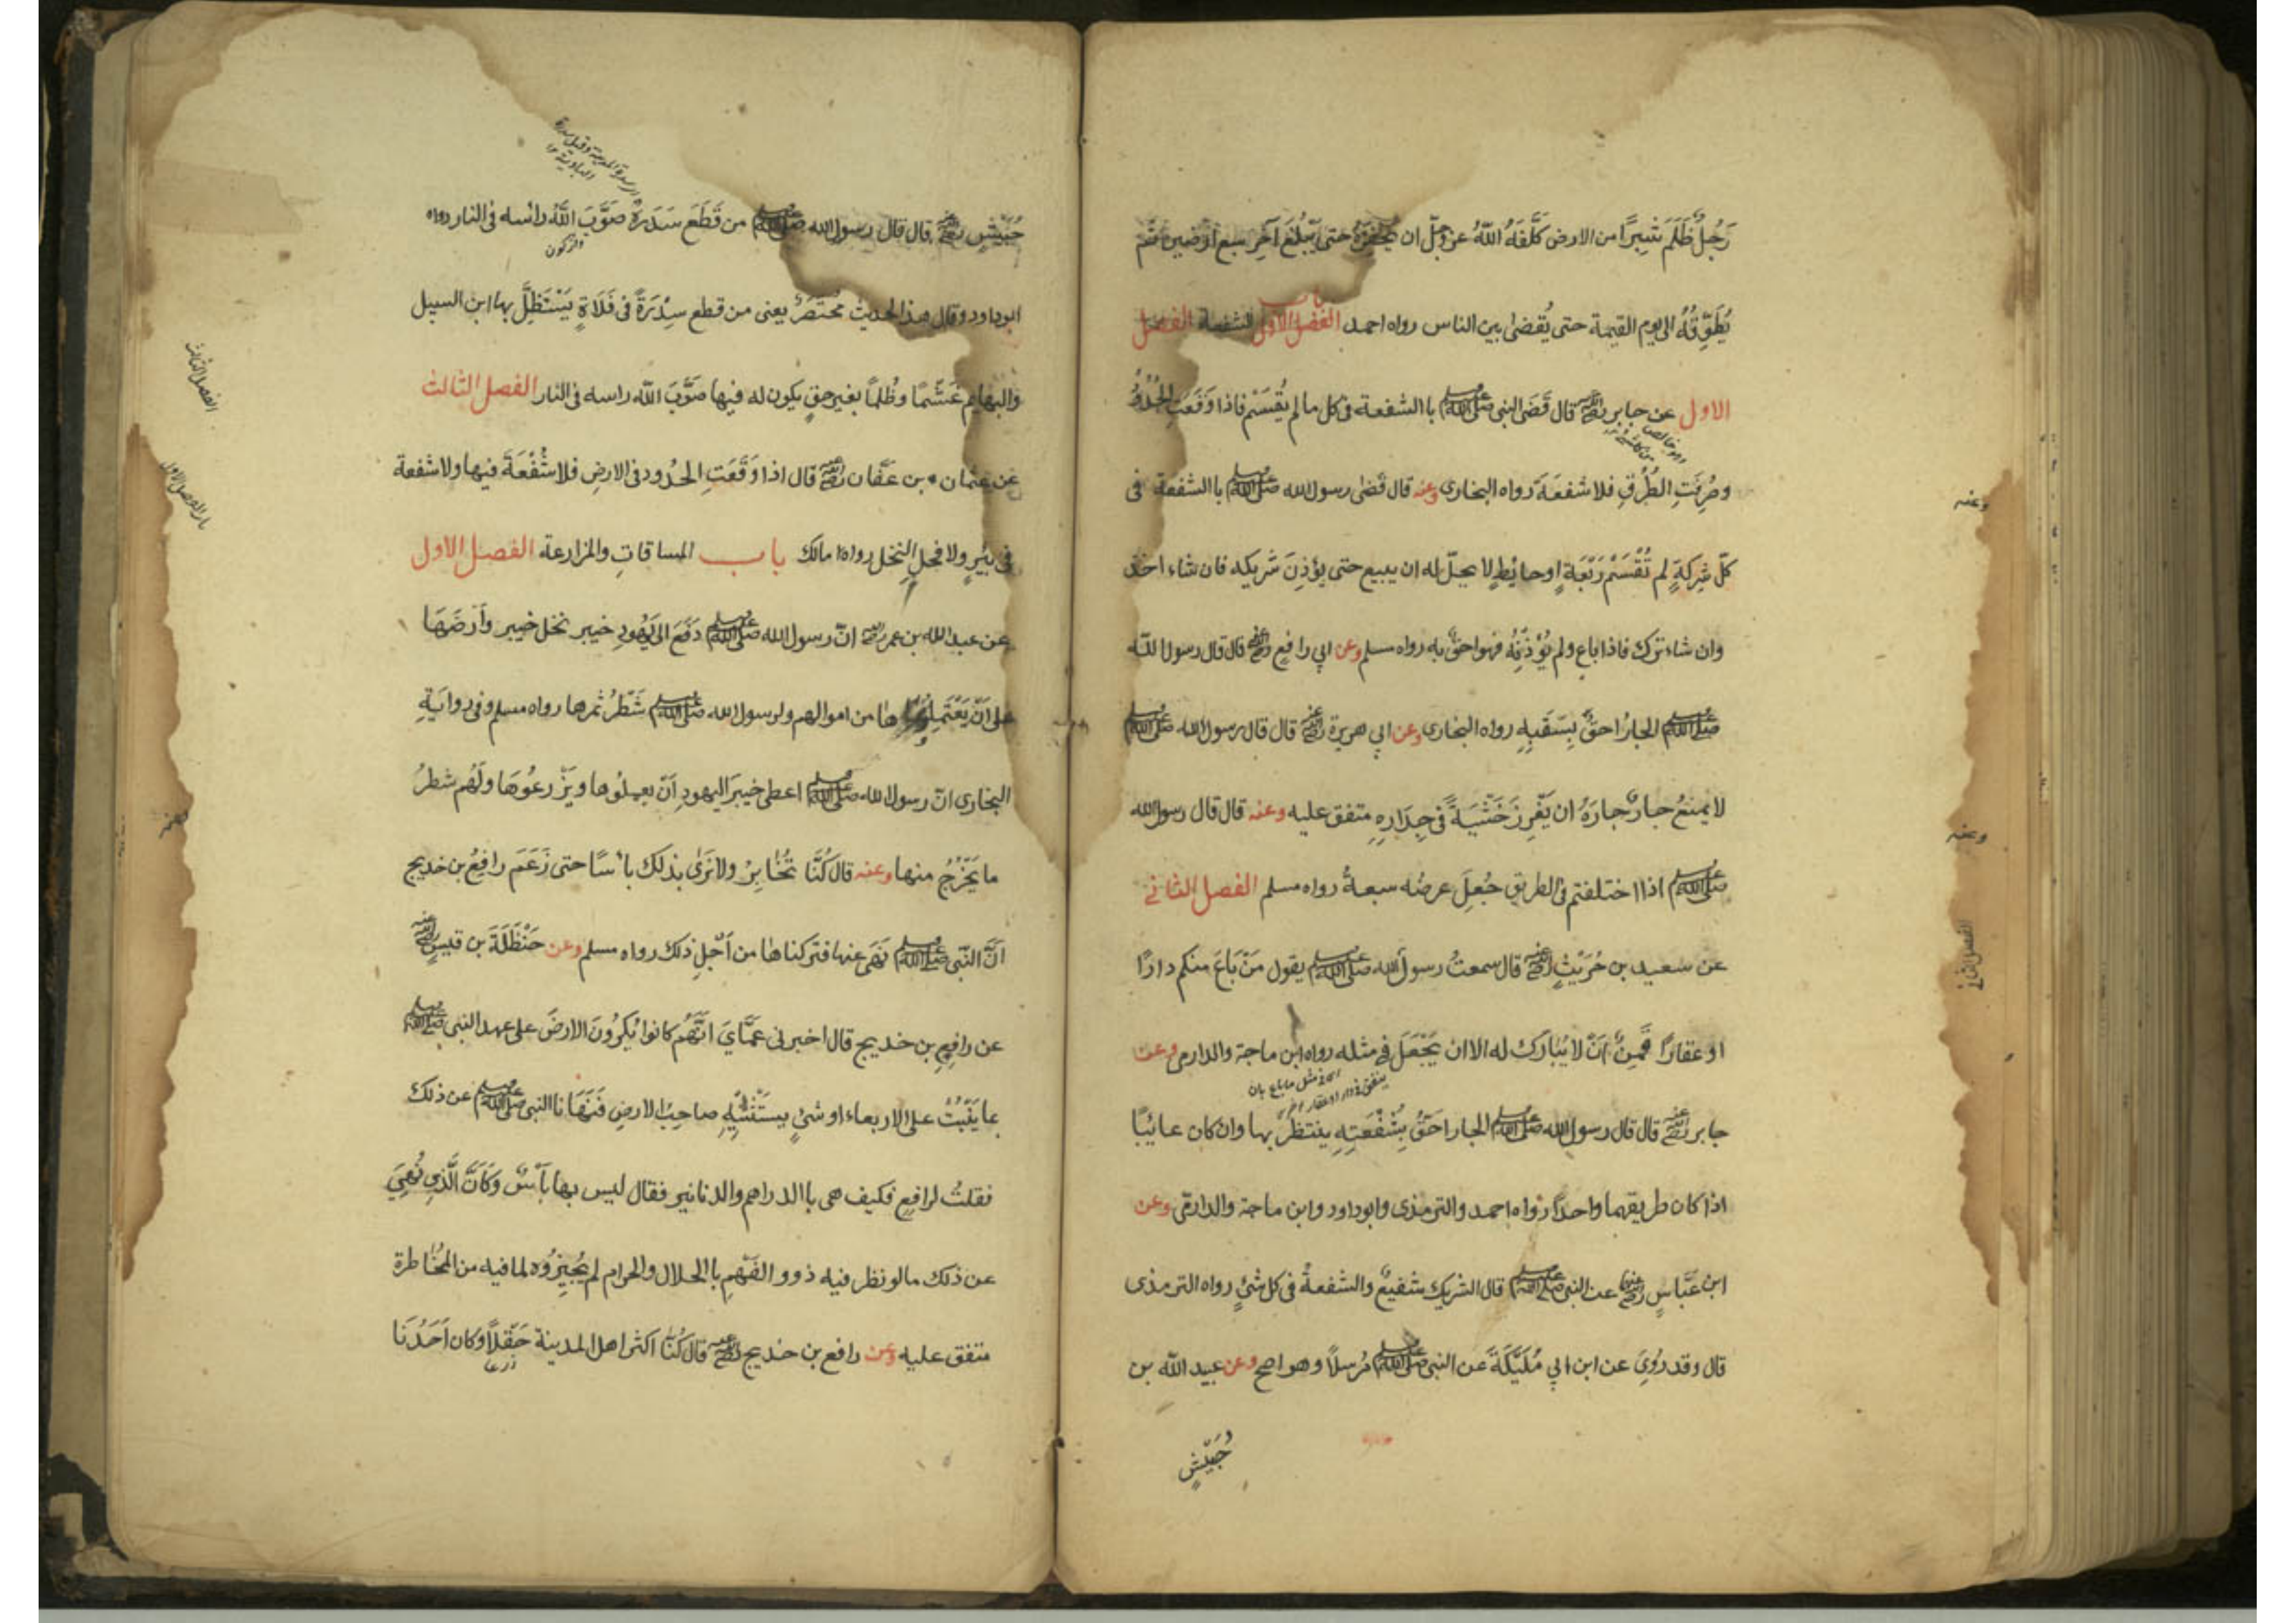 رَجُلٌ ظَلَمَ شِبْرًا من الارض كَلَّفَهُ اللّٰهُ عز وجلّ ان يَحْفِرَهُ حتى يَبْلُغَ آخِرَ سبع ارضين ثم
يُطَوِّقُهُ الى يوم القيمة حتى يُقضىٰ بين الناس رواه احمد باب الشفعة الفصل
الاول عن جابر رضي الله عنه قال قَضَى النبى ﷺ باالشفعة فى كل ما لم يُقْسَمْ فاذا وَقَعَتِ الحُدُودُ
وصُرِفَتِ الطُرُقِ فلا شفعَةَ رواه البخارى وعنه قال قَضىٰ رسول الله ﷺ باالشفعة فى
كلّ شِرْكَةٍ لم تُقْسَمْ رَبْعَةٍ اوحايُطٍ لا يحلّ له ان يبيع حتى يؤذِنَ شَريكه فان شاء اخذ
وان شاء ترك فاذا باع ولم يُؤْذِنْهُ فهو احقُّ به رواه مسلم وعن ابي رافعٍ رضي الله عنه قال قال رسول اللّه
ﷺ الجارُ احقُّ بِسَقَبِهِ رواه البخارى وعن ابي هريرة رضي الله عنه قال قال رسول الله ﷺ
لا يمنعُ جارٌ جارَهُ ان يَغْرِزَ خَشَبَةً فى جِدَارِهِ متفق عليه وعنه قال قال رسول الله
ﷺ اذا اختلفتم فى الطريق جُعِلَ عرضه سبعةُ رواه مسلم الفصل الثانى
عن سعيد بن حُرَيْثٍ رضي الله عنه قال سمعتُ رسول الله ﷺ يقول مَنْ بَاعَ منكم دارًا
او عقارًا قَمِنٌ اَنْ لا يُبَارَك له الا ان يَجْعَلَ فى مثله رواه ابن ماجة والدارمى وعن
جابر رضي الله عنه قال قال رسول الله ﷺ الجار احَقُّ بِشُفْعَتِهِ ينتظرُ بها وان كان غائبًا
اذا كان طريقهما واحدًا رواه احمد والترمذى وابوداود وابن ماجة والدارمى وعن
ابن عبّاسٍ رضي الله عنهما عن النبى ﷺ قال الشريك شفيعٌ والشفعةُ فى كل شئٍ رواه الترمذى
قال وقد رُوِىَ عن ابن ابي مُلَيْكَةَ عن النبى ﷺ مُرسلًا وهو اصح وعن عبيد اللّه بن
حُبَيْشٍ
وعنه
وعنه
الفصل الثاني
حُبَيْشٍ رضي الله عنه قال قال رسول الله ﷺ من قَطَعَ سَدَرةً صَوَّبَ اللّٰهُ رائسه فى النار رواه
ابوداود وقال هذا الحديث مُختَصَرٌ يعنى من قطع سِدْرَةً فى فَلَاةٍ يَسْتَظِلُّ بها ابن السبيل
والبهايم غَشْمًا وظُلمًا بغير حقٍ يكون له فيها صَوَّبَ اللّه راسه فى النار الفصل الثالث
عن عثمان بن عَفّان رضي الله عنه قال اذا وَقَعَتِ الحُدُود فى الارضِ فلا شُفْعَةَ فيها ولا شفعة
فى بئرٍ ولا فحلِ النخل رواه مالك باب المساقاتِ والمزارعة الفصل الاول
عن عبد الله بن عمر رضي الله عنه انّ رسول الله ﷺ دَفَعَ الى يَهُودِ خيبر نخل خيبر وَاَرضَهَا
على اَنْ يَعْتَمِلُوها من اموالهم ولرسول الله ﷺ شَطْرُ ثمرها رواه مسلم وفى روايَةِ
البخارى انّ رسول الله ﷺ اعطى خيبرَ اليهودِ اَنْ يعملُوها ويَزْرعُوهَا ولَهُم شطرُ
ما يَخْرُجُ منها وعنه قال كُنَّا نُخَابِرُ ولا نَرَى بذلك باْسًا حتى زَعَمَ رافعُ بن خديج
اَنَّ النّبى ﷺ نَهَى عنها فتركناها من اَجْلِ ذلك رواه مسلم وعن حَنْظَلَةَ بن قيسٍ رضي الله عنه
عن رافِعِ بن خديج قال اخبرنى عَمَّايَ انّهُم كانوا يُكرُونَ الارضَ على عهد النبى ﷺ
بما يَنْبُتُ على الاربعاء او شئٍ يستَثْنِيْهِ صاحِبُ الارضِ فَنَهَانا النبى ﷺ عن ذلك
فقلتُ لرافعٍ فكيف هى باالدراهم والدنانير فقال ليس بها بَأْسٌ وَكَأَنَّ الَّذِى نُهِىَ
عن ذلك ما لو نظر فيه ذوو الفَهْمِ باالحلال والحرام لم يُجِيزُوه لما فيه من المُخَاطرة
متفق عليه وعن رافع بن خديج رضي الله عنه قال كُنّا اكثر اهل المدينة حَقْلًا وكان اَحَدُنَا
زرعا
الفصل الثالث
باب الفصل الاول
وعنه